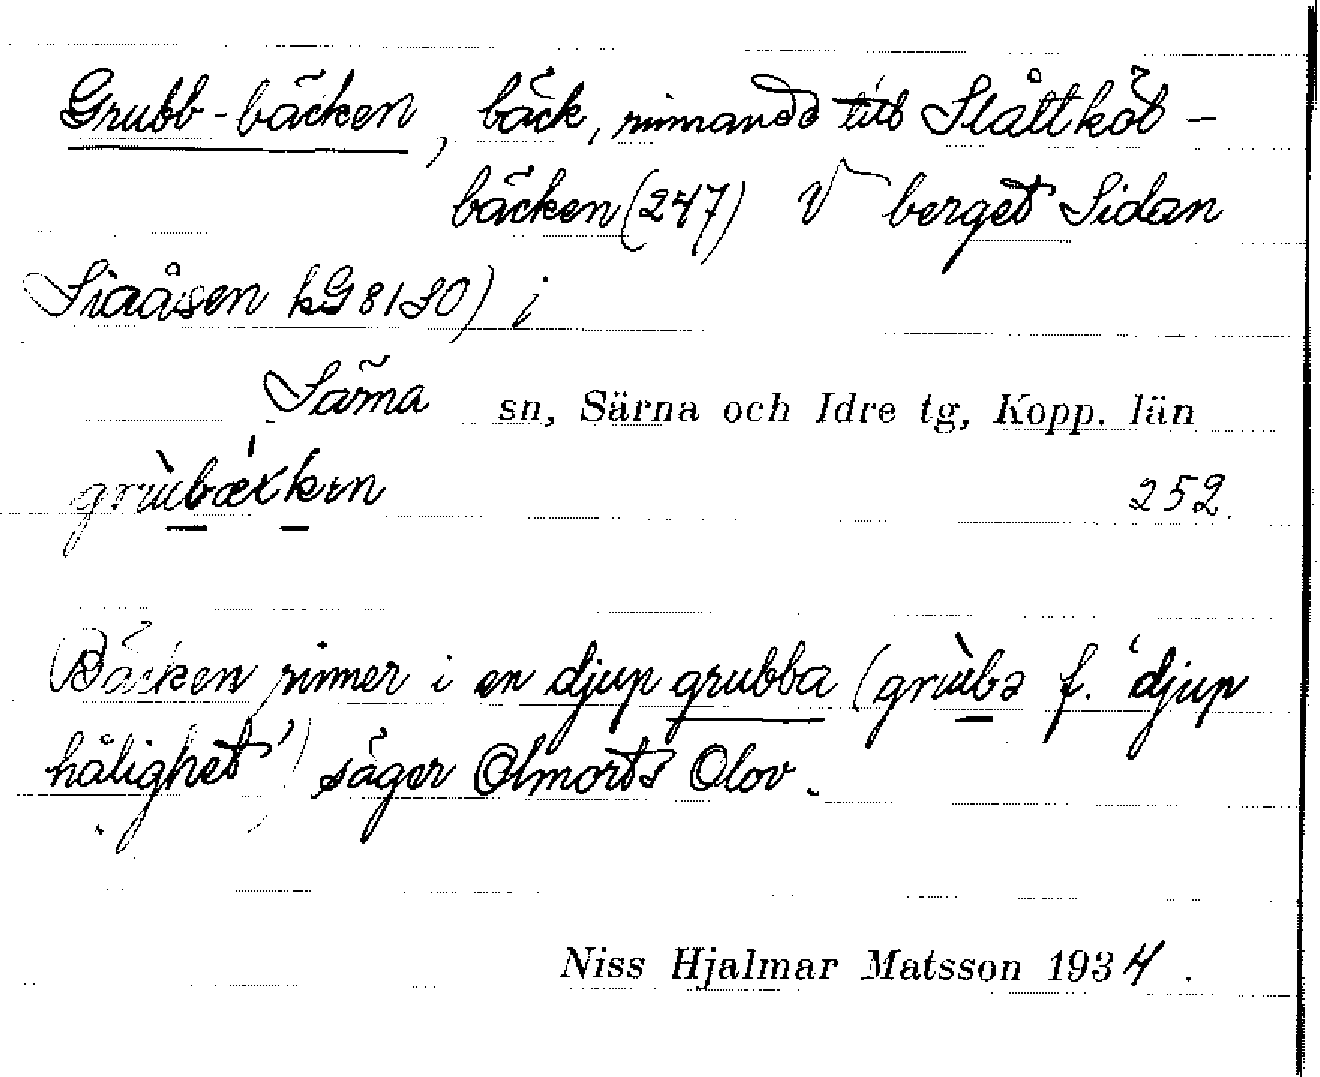 Grubb-bäcken, bäck, rinnande till Slåttköl-
bäcken (247) V berget Sidan
Siaåsen kG8130) i
Särna sn, Särna och Idre tg, Kopp. län
252.
Bäcken rinner i en djup grubba (grùba f. 'djup
hålighet') säger Olmorts Olov.
Niss Hjalmar Matsson 1934.